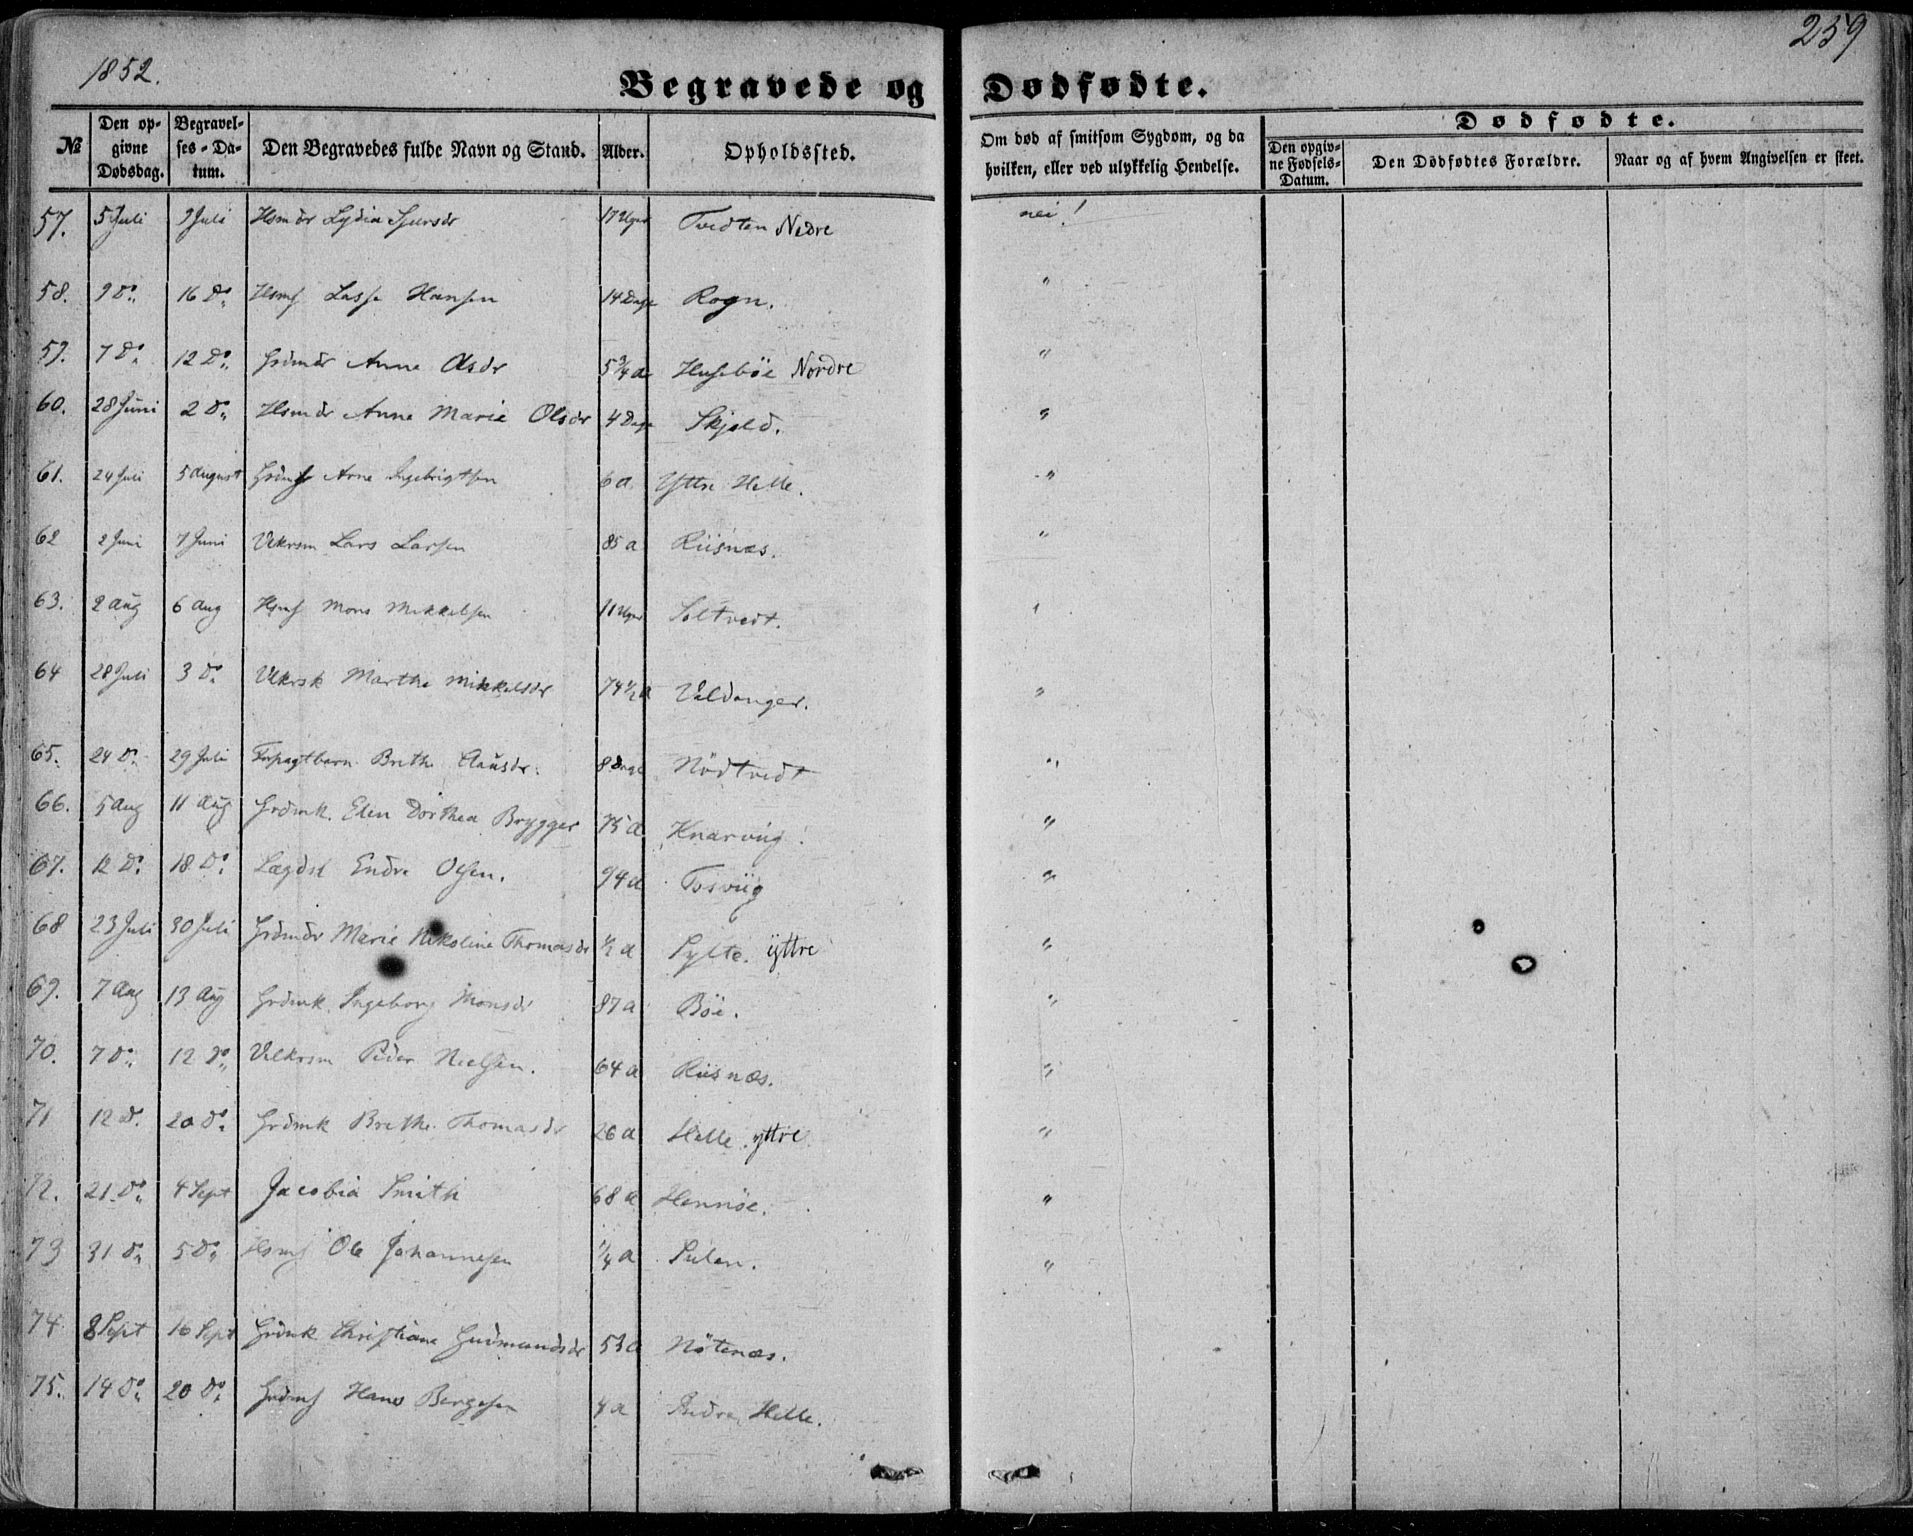 259
1852.
Begravede og Dødfødte.
№ | Den opgivne Dødsdag. | Begravelses-Datum. | Den Begravedes fulde Navn og Stand. | Alder. | Opholdssted. | Om død af smitsom Sygdom, og da hvilken, eller ved ulykkelig Hendelse. | Dødfødte. | Den opgivne Fødsels-Datum. | Den Dødfødtes Forældre. | Naar og af hvem Angivelsen er skeet.
57. 5 Juli 9 Juli Hsmdr Lydia Sjursdr 17 Uger Tvedten Nedre nei!
58. 9 Do. 16 Do. Hsms Lasse Hansen 14 Dage Rogn. "
59. 7 Do. 12 Do. Grdmdr Anne Olsdr 5 3/4 a Husebøe Nordre "
60. 28 Juni 2 Do. Hsmdr Anne Marie Olsdr 4 Dage Skjeld. "
61. 24 Juli 5 August Grdms Arne Ingebrigtsen 6 a Yttre Helle. "
62 2 Juni 7 Juni Vlkrsm Lars Larsen 85 a Riisnæs. "
63. 2 Aug 6 Aug Hsms Mons Mikkelsen 11 Uger Soltvedt. "
64 28 Juli 3 Do. Vlkrsk Marthe Mikkelsdr 74 1/2 a Valdanger. "
65. 24 Do. 29 Juli Brithe Clausdr. 8 Dage Nødtvedt "
66. 5 Aug 11 Aug Grdmk. Elen Dorthea Brygger 75 a Knarviig. "
67. 12 Do. 18 Do. Lægdsl Endre Olsen. 94 a Tosviig "
68 23 Juli 30 Juli Grdmdr Marie Nikoline Thomasdr 1/2 a Sylte. yttre "
69. 7 Aug 13 Aug Grdmk. Ingeborg Monsdr 87 a Bøe. "
70. 7 Do. 12 Do. Vlkrsm Peder Nielsen. 64 a Riisnæs. "
71 12 Do. 20 Do. Grdmk Brithe Thomasdr 26 a Helle. yttre "
72. 21 Do. 4 Sept Jacobia Smith 68 a Hennøe. "
73 31 Do. 5 Do. Hsms Ole Johannesen 1/4 a "
74 8 Sept 16 Sept Grdmk Christiane Gudmundsdr 53 a Nøtenæs.
75. 14 Do. 20 Do. Grdms Hans Bergesen 4 a Helle.